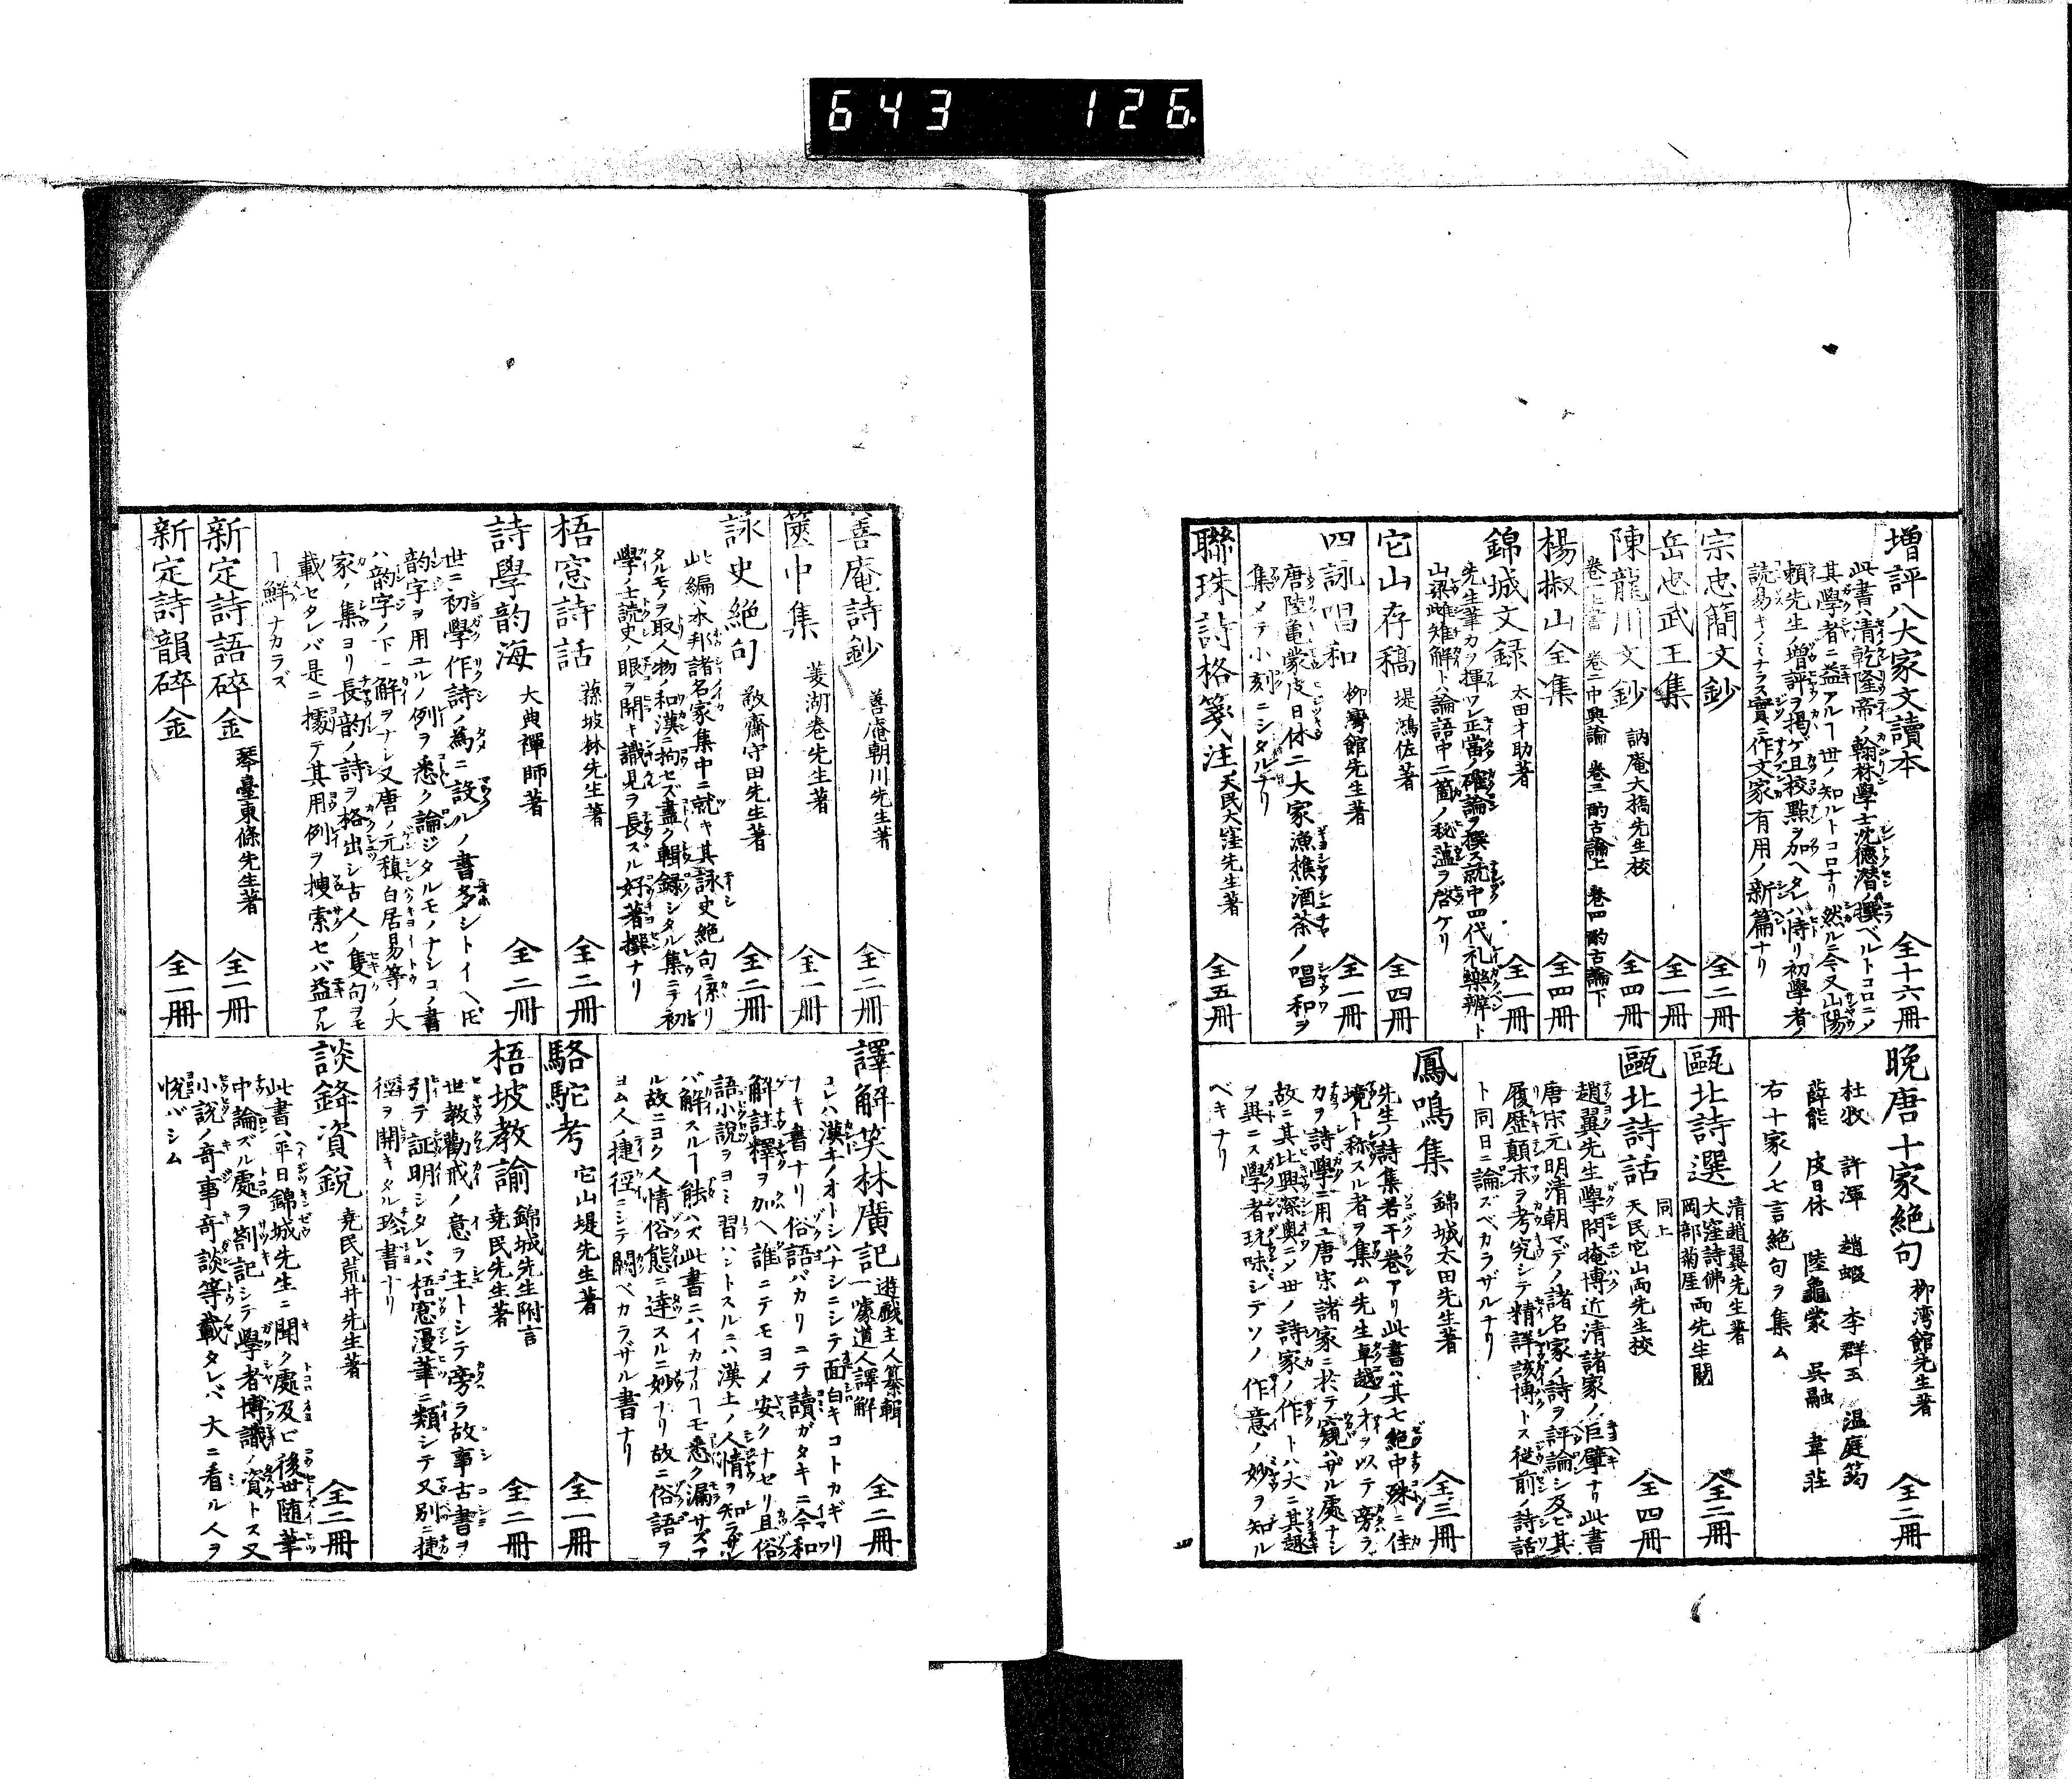 643 126
増評八大家文讀本 全十六冊
此書ハ清乾隆帝ノ翰林學士沈德潜ノ撰ベルトコロニノ
其學者ニ益アルヿ世ノ知ルトコロナリ然ルニ今又山陽
頼先生ノ増評ヲ掲ゲ且校點ヲ加ヘタレハ
読易キノミナラス實ニ作文家有用ノ新篇ナリ
宗忠簡文鈔 全二冊
岳忠武王集 全一冊
陳龍川文鈔 訥庵大橋先生校 全四冊
巻一上書 巻二中興論 巻三酌古論上 巻四酌古論下
楊椒山全集 全四冊
錦城文録 太田才助著 全一冊
先生筆力ヲ揮ツレ正當ノ確論ヲ撰ス就中四代礼樂辨ト
山梁雌雉解ト論語中二箇ノ秘薀ヲ啓ケリ
它山存稿 堤鴻佐著 全四冊
四詠唱和 柳灣館先生著 全一冊
唐陸亀蒙皮日休二大家漁樵酒茶ノ唱和ヲ
集メテ小刻ニシタルナリ
聯珠詩格箋注 天民大窪先生著 全五冊
晩唐十家絶句 柳湾館先生著 全二冊
杜牧 許渾 趙嘏 李群玉 温庭筠
薛能 皮日休 陸龜蒙 呉融 韋荘
右十家ノ七言絶句ヲ集ム
甌北詩選 清趙翼先生著 大窪詩佛 岡部菊厓 両先生閲 全二冊
甌北詩話 同上 天民它山両先生校 全四冊
趙翼先生學問掩博近清諸家ノ巨擘ナリ此書
唐宗元明清朝マデノ諸名家ノ詩ヲ評論シ及ビ其
履歴顛末ヲ考究シテ精詳該博トス従前ノ詩話
ト同日ニ論ズベカラザルナリ
鳳鳴集 錦城太田先生著 全三冊
先生ノ詩集若干巻アリ此書ハ其七絶中殊ニ佳
境ト称スル者ヲ集ム先生卓越ノ才ヲ以テ旁ラ
力ヲ詩學ニ用ユ唐宗諸家ニ於テ窺ハザル處ナシ
故ニ其比興深奥ニノ世ノ詩家ノ作トハ大ニ其趣
ヲ異ニス學者玩味シテソノ作意ノ妙ヲ知ル
ベキナリ
善庵詩鈔 善庵朝川先生著 全二冊
篋中集 菱湖巻先生著 全一冊
詠史絶句 敬齋守田先生著 全二冊
此編ハ本邦諸名家集中ニ就キ其詠史絶句ニ係リ
タルモノヲ取人物ノ和漢ニ拘セズ盡ク輯録シタル集ニテ初
學ノ士読史ノ眼ヲ開キ識見ヲ長スル好著撰ナリ
梧窓詩話 蓀坡林先生著 全二冊
詩學韵海 大典禪師著 全二冊
世ニ初學作詩ノ為ニ設ルノ書多シトイヘ𪜈
韵字ヲ用ユルノ例ヲ悉ク論ジタルモノナシコノ書
ハ韵字ノ下一解ヲナシ又唐ノ元稹白居易等ノ大
家ノ集ヨリ長韵ノ詩ヲ格出シ古人ノ隻句ヲモ
載セタレバ是ニ據テ其用例ヲ捜索セバ益アル
ヿ鮮ナカラズ
新定詩語碎金 琴臺東條先生著 全一冊
新定詩韻碎金 全一冊
譯解笑林廣記 遊戯主人纂輯 一噱道人譯解 全二冊
コレハ漢土ノオトシハナシニシテ面白キコトカギリ
ナキ書ナリ俗語バカリニテ讀ガタキニ今和
解註釋ヲ加ヘ誰ニテモヨメ安クナセリ且俗
語小説ヲヨミ習ハントスルニハ漢土ノ人情ヲ知ラザレ
バ解スルヿ能ハズ此書ニハイカナルヿモ悉ク漏サズア
ル故ニヨク人情俗態ニ達スルニ妙ナリ故ニ俗語ヲ
ヨム人ノ捷徑ニシテ闕ベカラザル書ナリ
駱駝考 它山堤先生著 全一冊
梧坡教諭 錦城先生附言 堯民先生著 全二冊
世教勸戒ノ意ヲ主トシテ旁ラ故事古書ヲ
引テ証明シタレバ梧窓漫筆ニ類シテ又別ニ捷
徑ヲ開キタル珍書ナリ
談鋒資鋭 堯民荒井先生著 全二冊
此書ハ平日錦城先生ニ聞ク處及ビ後世随筆
中論ズル處ヲ劄記シテ學者博識ノ資トス又
小説ノ奇事奇談等載タレバ大ニ看ル人ヲ
悦バシム